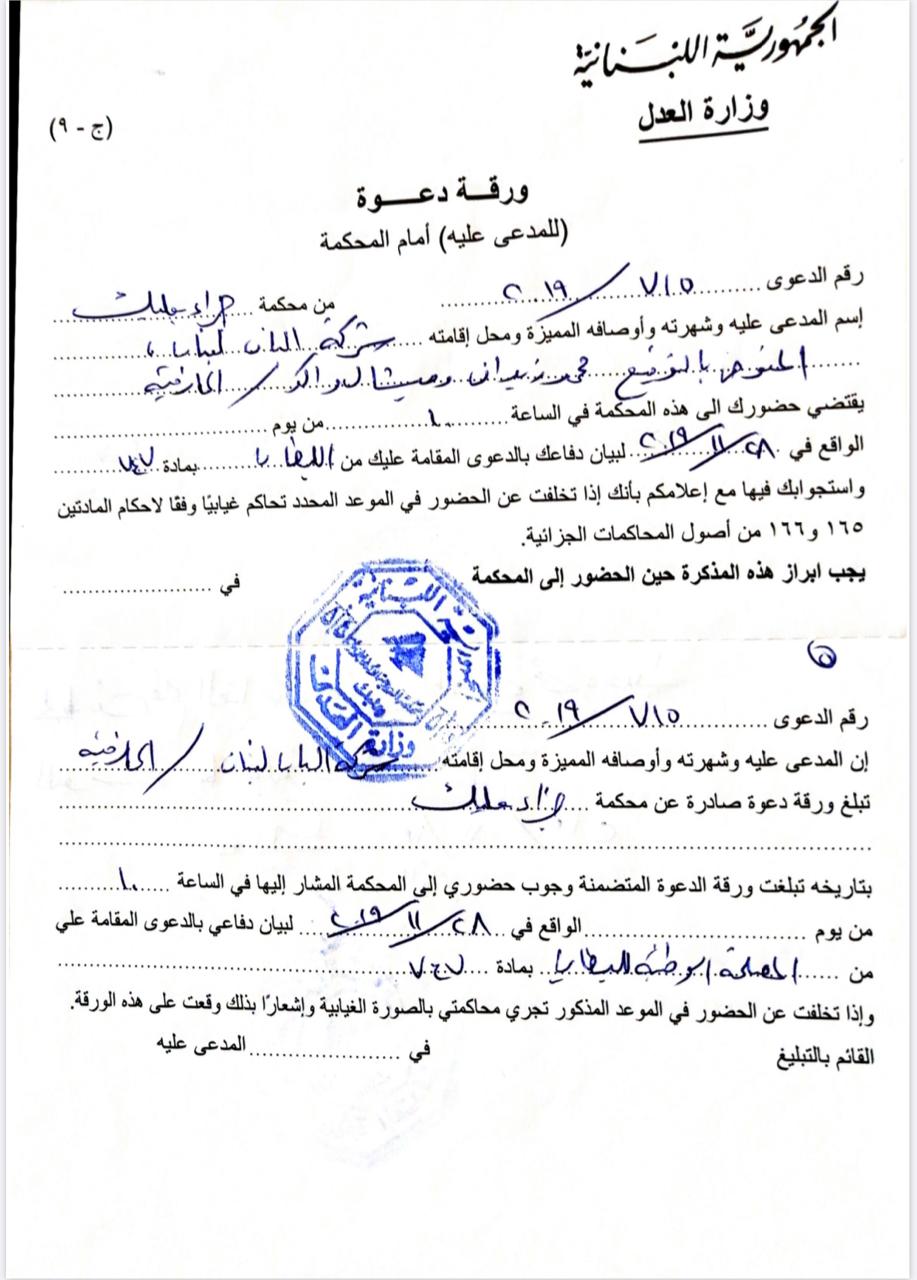 الجمهوريّة اللبنانيّة
وزارة العدل
(ج - ٩)
ورقة دعوة
(للمدعى عليه) أمام المحكمة
رقم الدعوى ٧١٥/٢٠١٩ من محكمة جزاء بعلبك
إسم المدعى عليه وشهرته وأوصافه المميزة ومحل إقامته شركة البان لبنان
المفوض بالتوقيع
يقتضي حضورك الى هذه المحكمة في الساعة ١٠ من يوم
الواقع في ٢٨/١١/٢٠١٩ لبيان دفاعك بالدعوى المقامة عليك من الليطاني بمادة ٧٤٧
واستجوابك فيها مع إعلامكم بأنك إذا تخلفت عن الحضور في الموعد المحدد تحاكم غيابيًا وفقًا لاحكام المادتين
١٦٥ و١٦٦ من أصول المحاكمات الجزائية.
يجب ابراز هذه المذكرة حين الحضور إلى المحكمة في
الجمهورية اللبنانية
وزارة العدل
بعلبك
٥
رقم الدعوى ٧١٥/٢٠١٩
إن المدعى عليه وشهرته وأوصافه المميزة ومحل إقامته شركة البان لبنان /
تبلغ ورقة دعوة صادرة عن محكمة جزاء بعلبك
بتاريخه تبلغت ورقة الدعوة المتضمنة وجوب حضوري إلى المحكمة المشار إليها في الساعة ١٠
من يوم الواقع في ٢٨/١١/٢٠١٩ لبيان دفاعي بالدعوى المقامة علي
من المصلحة الوطنية لليطاني بمادة ٧٤٧
وإذا تخلفت عن الحضور في الموعد المذكور تجري محاكمتي بالصورة الغيابية وإشعارًا بذلك وقعت على هذه الورقة.
القائم بالتبليغ في المدعى عليه